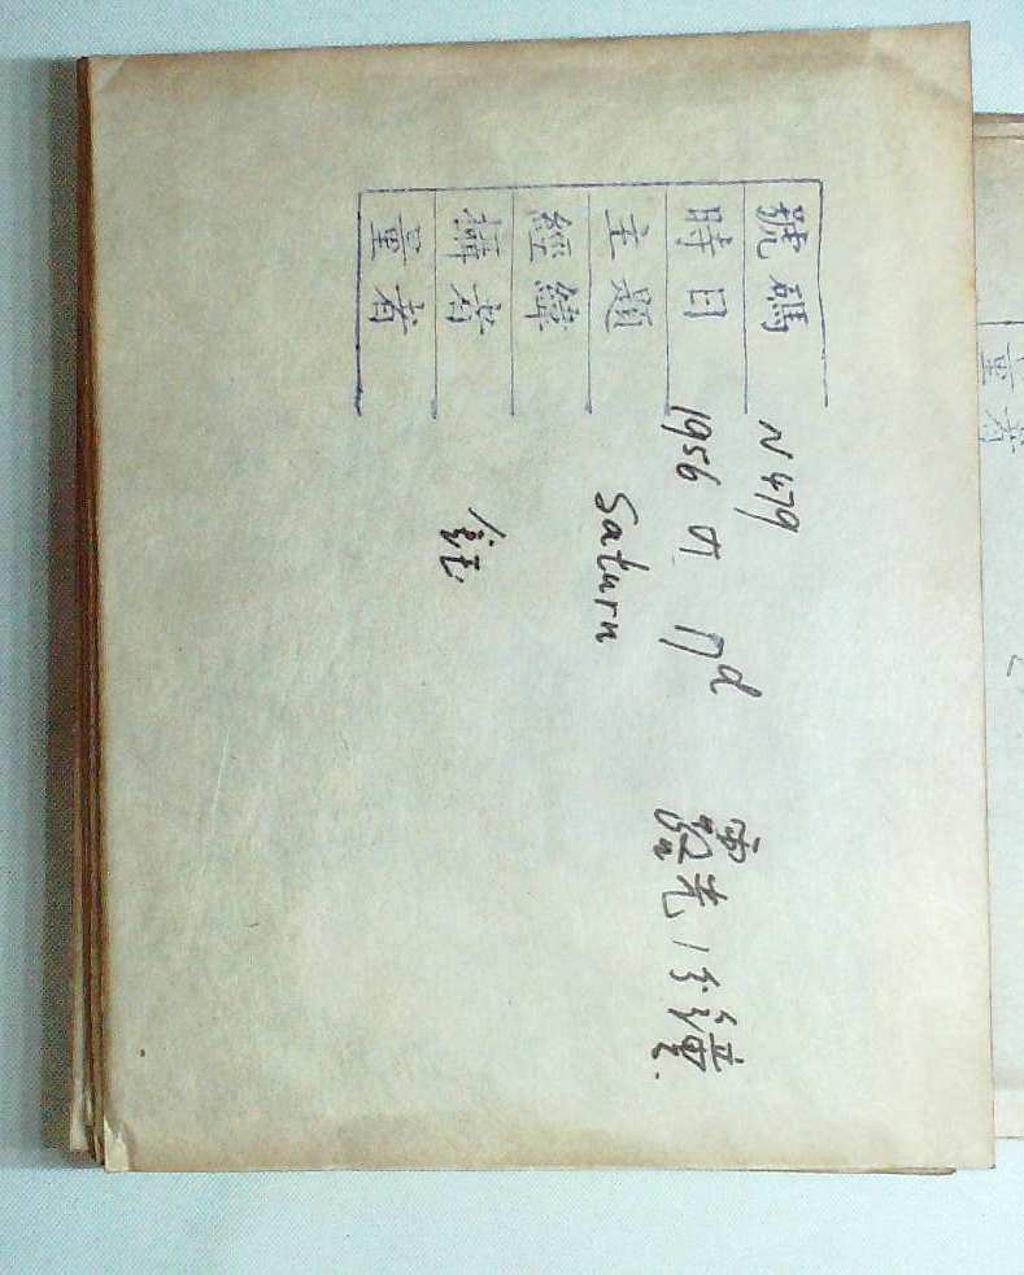 號碼 N479
時日 1956 VI 17d 露光1分鐘.
主題 Saturn
經緯
攝者 鈺
量者
量者